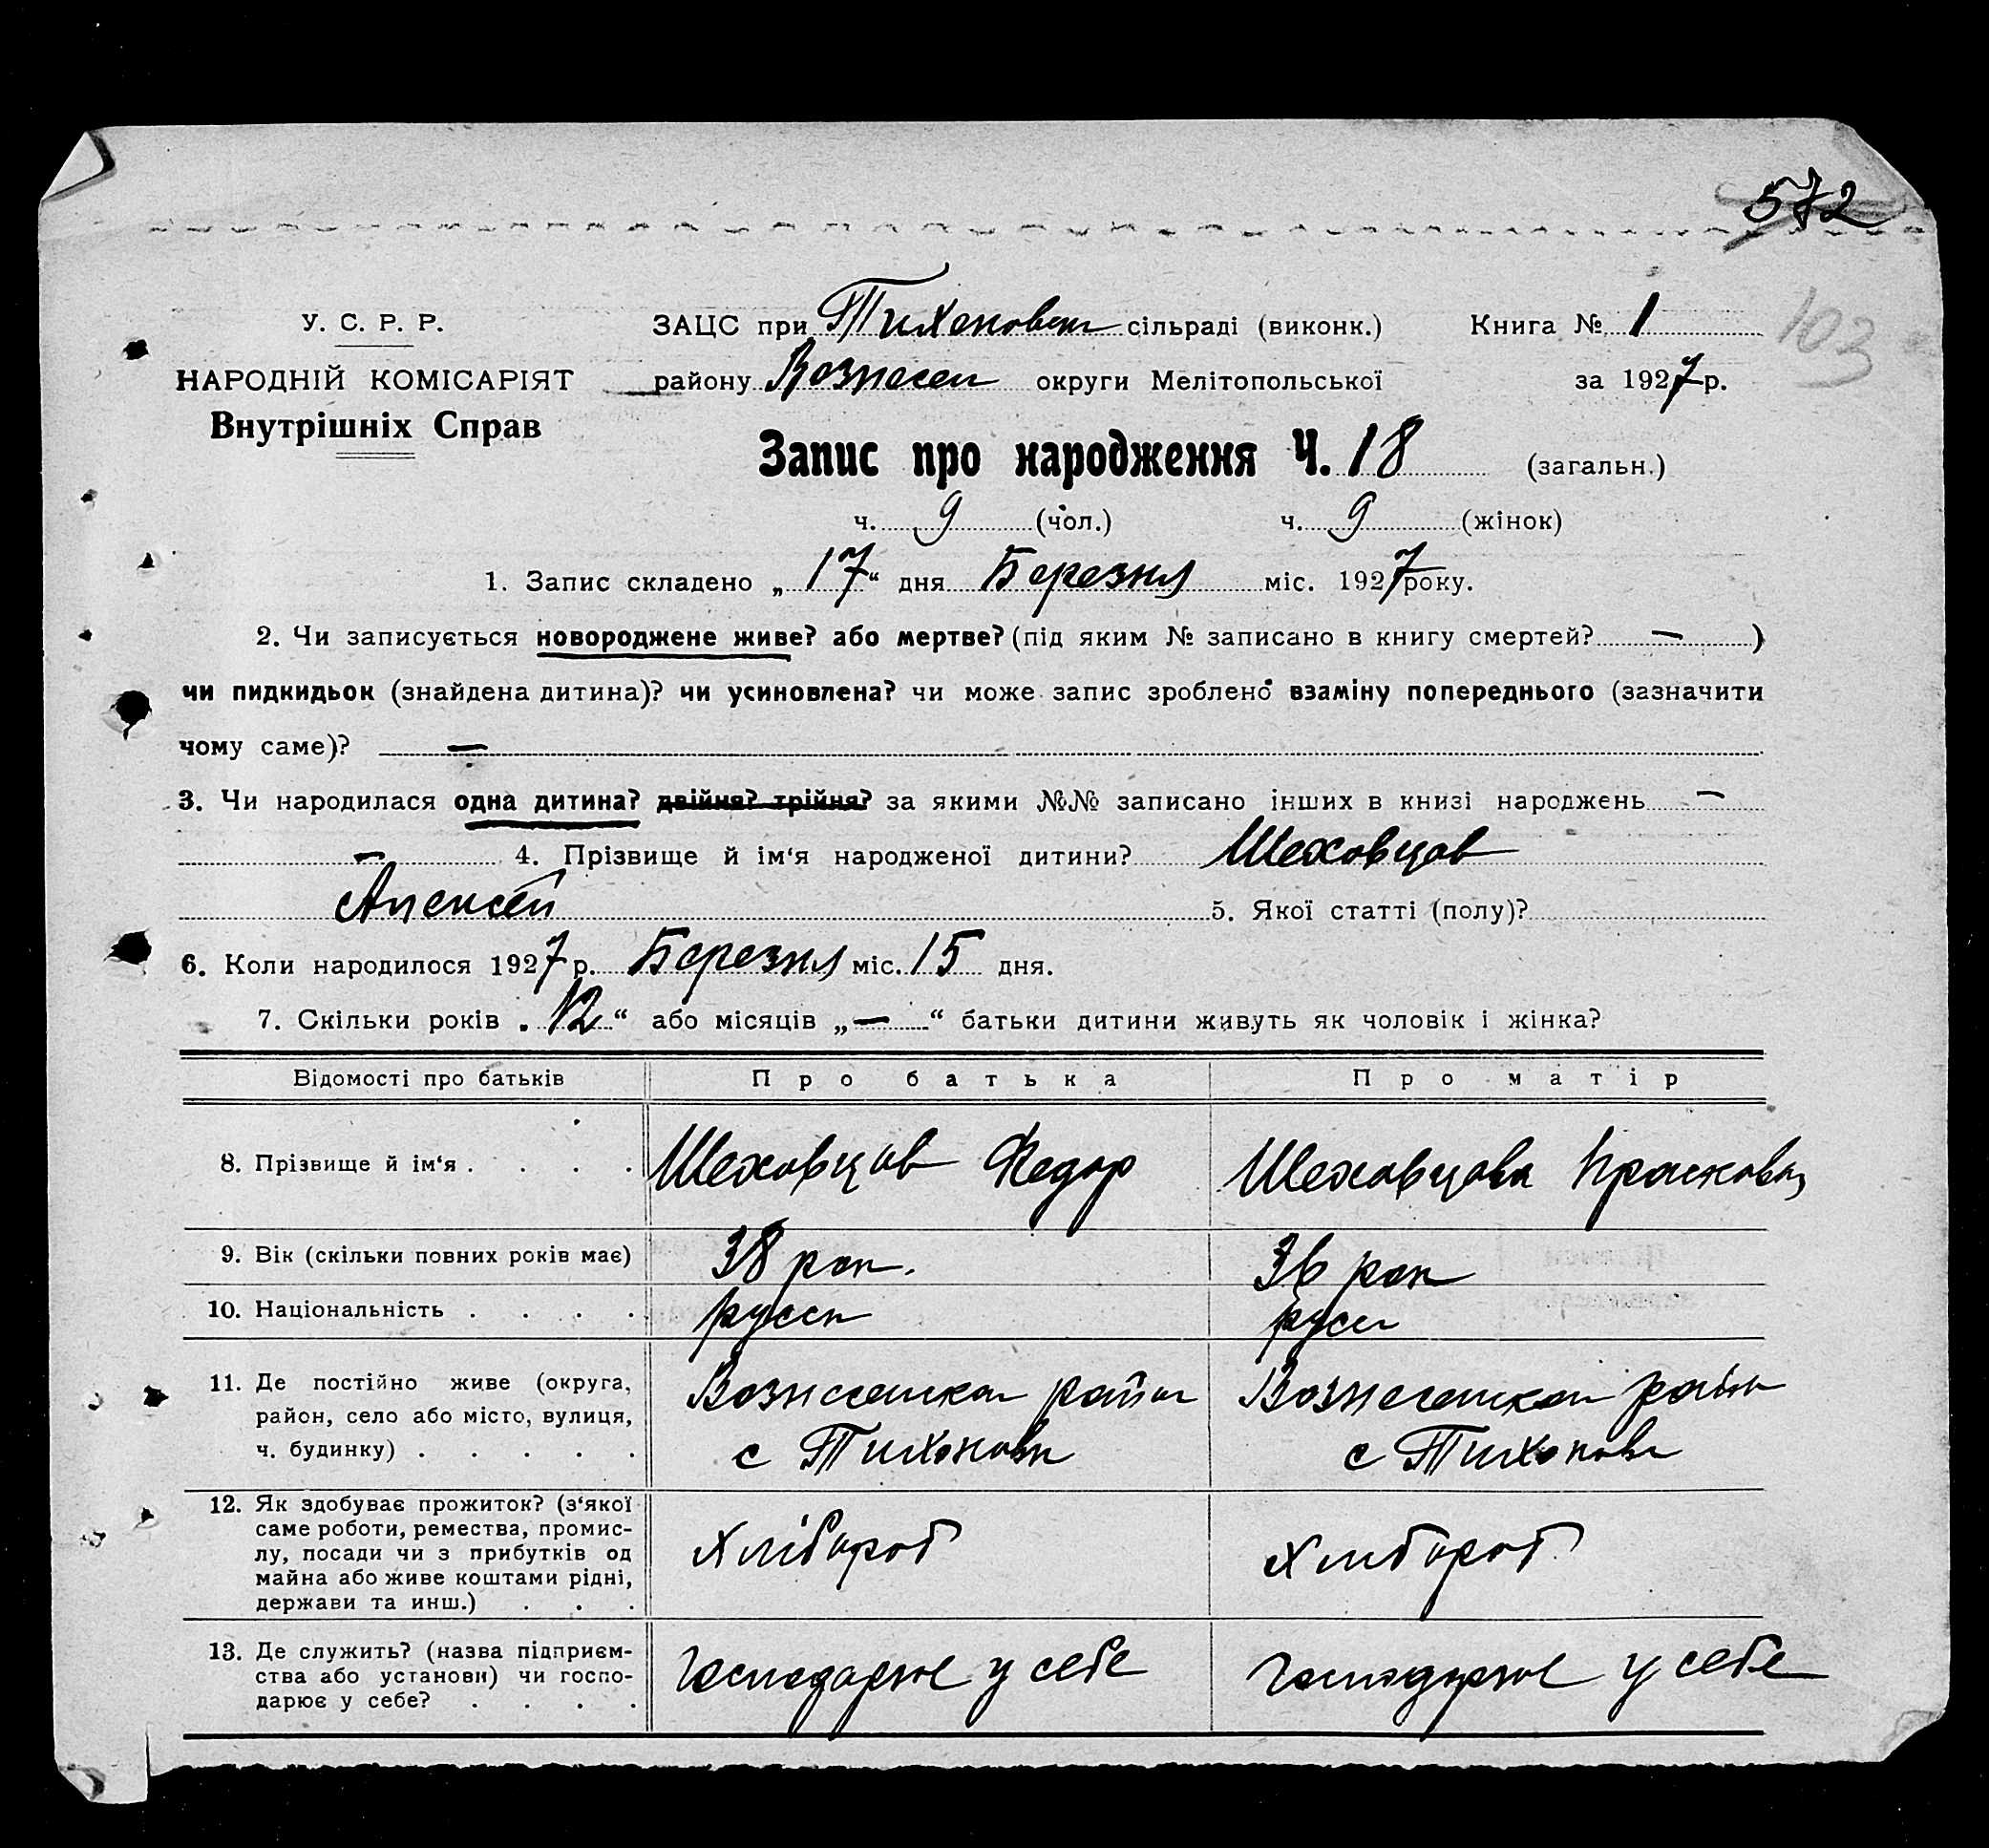 572
У. С. Р. Р.
ЗАЦС при Тихоновськ сільраді (виконк.) Книга № 1
103
НАРОДНІЙ КОМІСАРІЯТ
району Вознесен округи Мелітопольської за 1927 р.
Внутрішніх Справ
Запис про народження Ч. 18 (загальн.)
ч. 9 (чол.) ч. 9 (жінок)
1. Запис складено „17“ дня Березня міс. 1927 року.
2. Чи записується новороджене живе? або мертве? (під яким № записано в книгу смертей? — )
чи пидкидьок (знайдена дитина)? чи усиновлена? чи може запис зроблено взаміну попереднього (зазначити
чому саме)? —
3. Чи народилася одна дитина? двійня? трійня? за якими №№ записано інших в книзі народжень —
— 4. Прізвище й ім‘я народженої дитини? Шеховцов
Алексей 5. Якої статті (полу)?
6. Коли народилося 1927 р. Березня міс. 15 дня.
7. Скільки років „12“ або місяців „—“ батьки дитини живуть як чоловік і жінка?
Відомості про батьків Про батька Про матір
8. Прізвище й ім‘я . . . . Шеховцов Федор Шеховцова Прасковья
9. Вік (скільки повних років має) 38 рок. 36 рок
10. Національність . . . . русск русс
11. Де постійно живе (округа,
район, село або місто, вулиця,
ч. будинку) . . . . .
Вознесенком район
с Тихоновк
Вознесенком район
с Тихоновк
12. Як здобуває прожиток? (з‘якої
саме роботи, ремества, промис-
лу, посади чи з прибутків од
майна або живе коштами рідні,
держави та инш.) . . .
Хлібороб
Хлібороб
13. Де служить? (назва підприєм-
ства або установи) чи госпо-
дарює у себе? . . . .
Господарює у себе
Господарює у себе